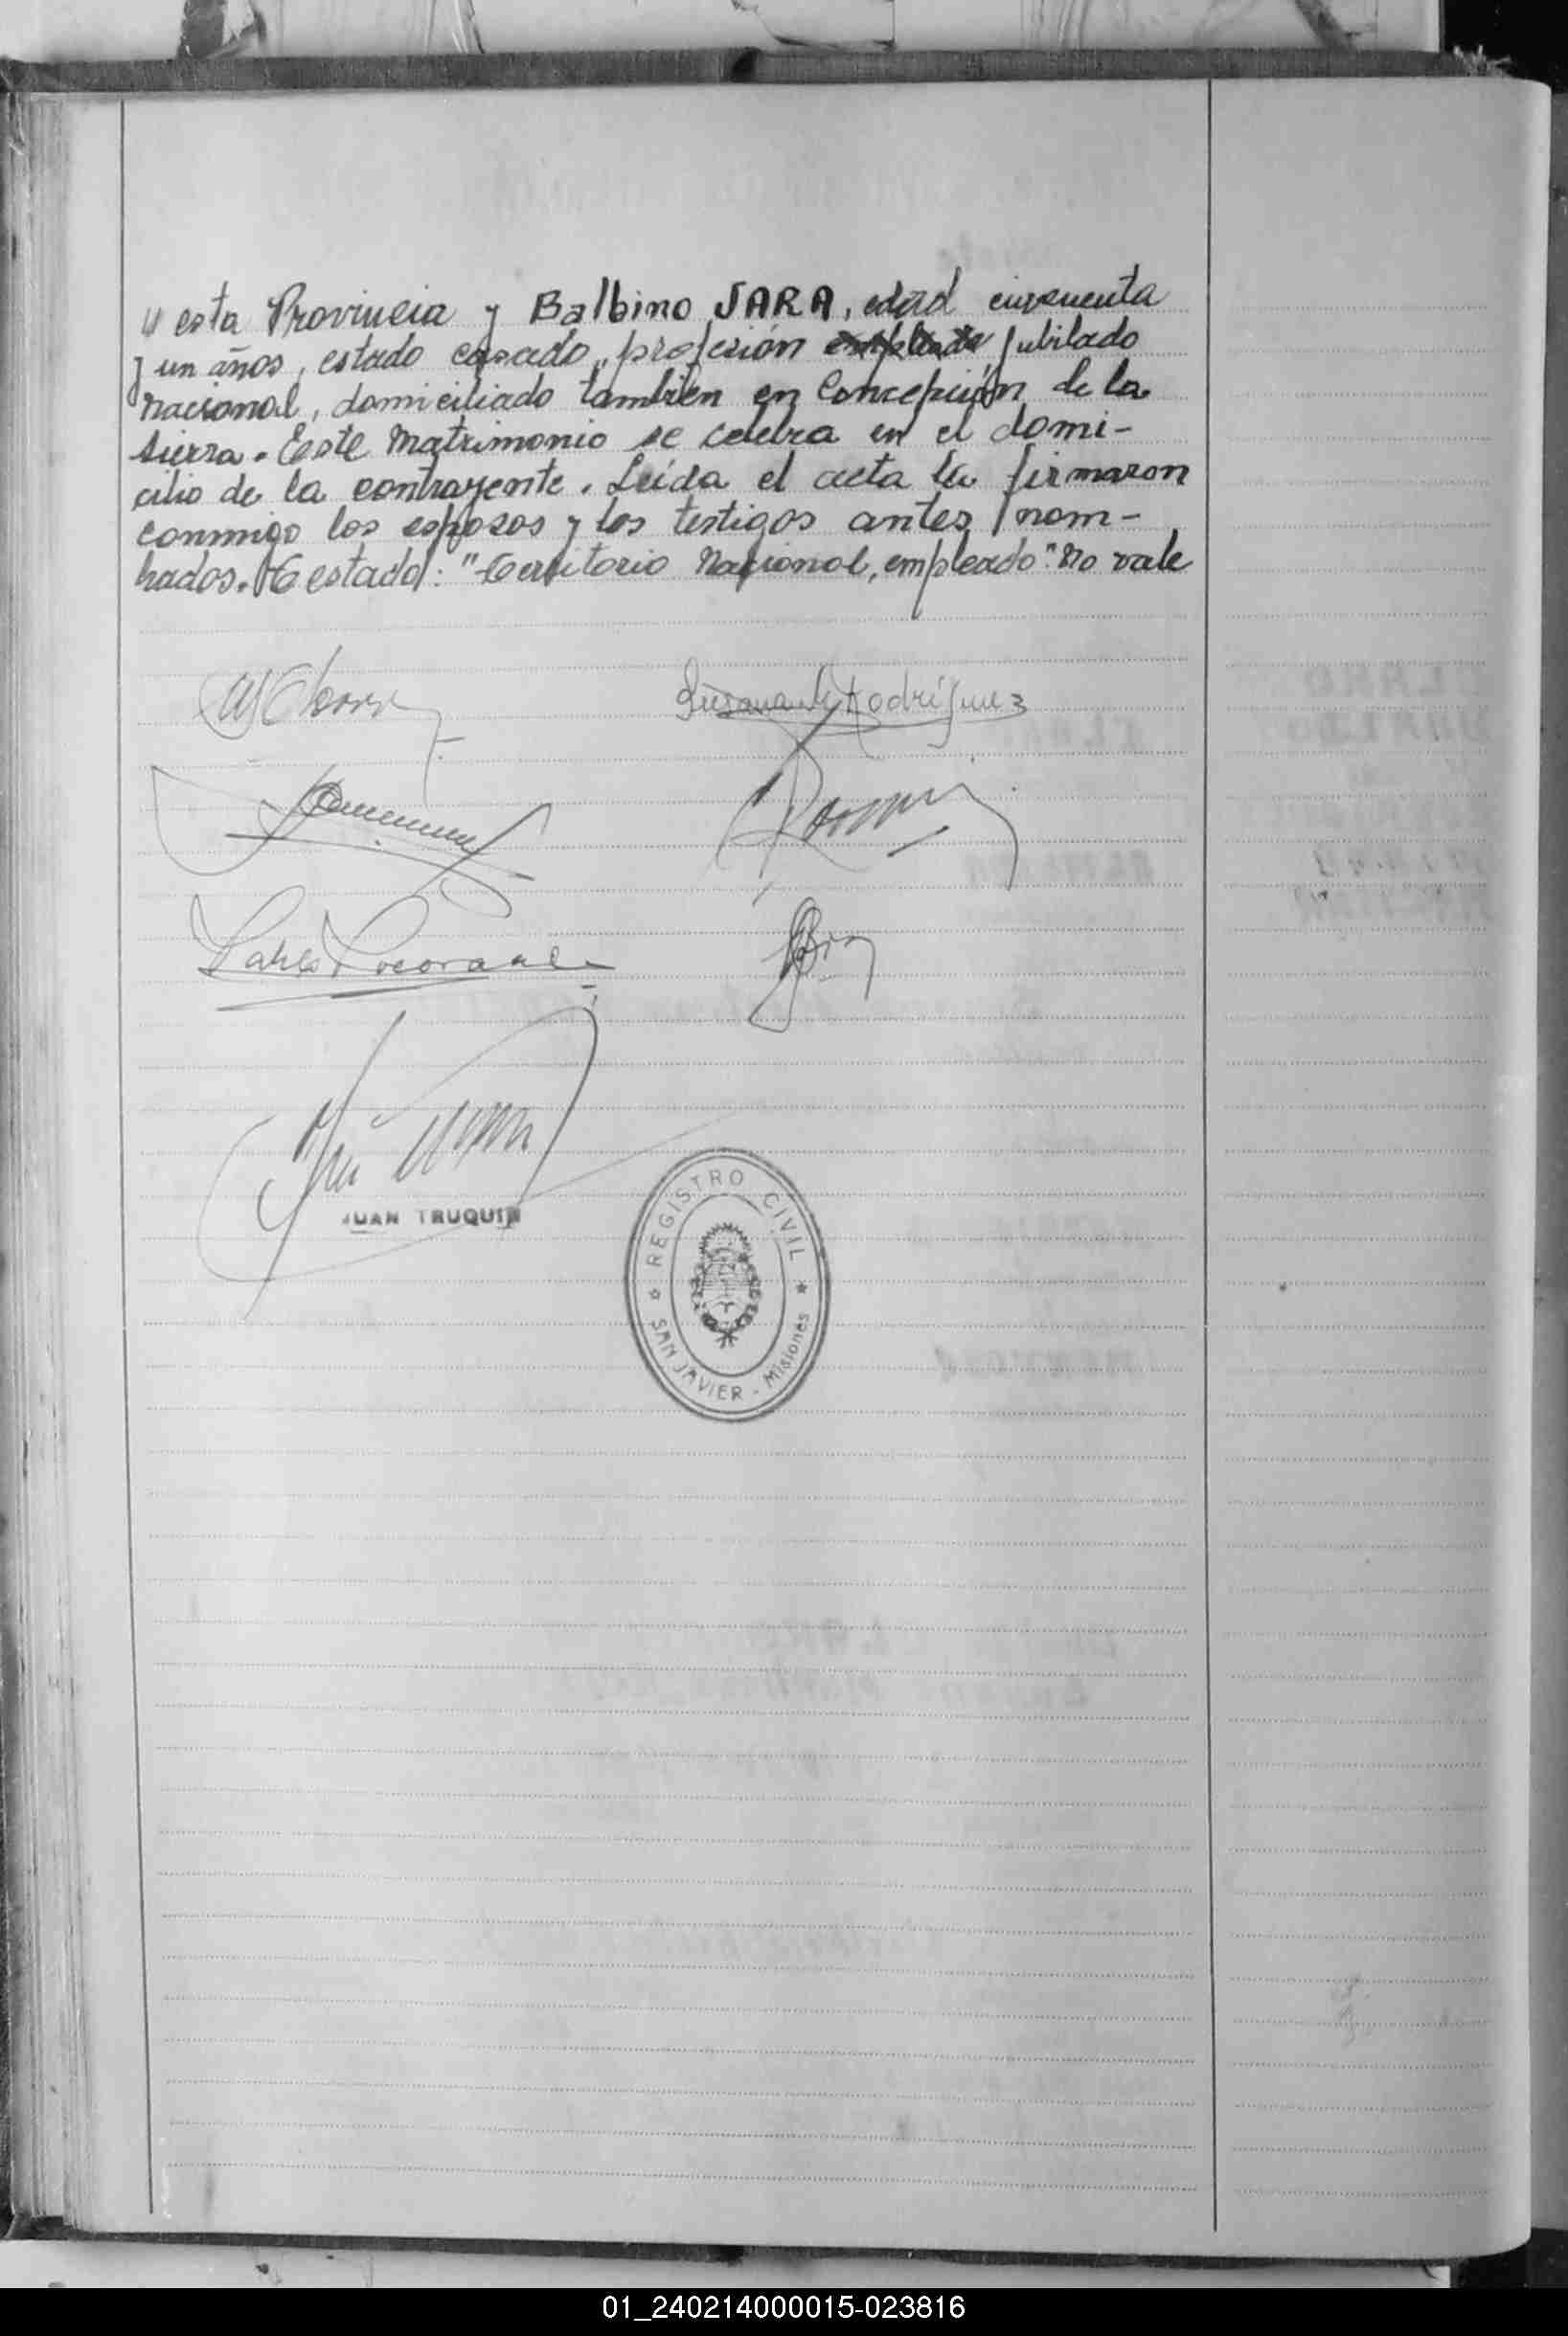 " esta Provincia y Balbino JARA, edad cincuenta
y un años, estado casado, profesión empleado jubilado
nacional, domiciliado también en Concepción de la
sierra. Este Matrimonio se celebra en el domi-
cilio de la contrayente. Leída el acta la firmaron
conmigo los esposos y los testigos antes nom-
brados. Testado: "Territorio Nacional, empleado" No vale
Susana Rodríguez
JUAN TRUQUIN
REGISTRO CIVIL
SAN JAVIER - Misiones
01_240214000015-023816